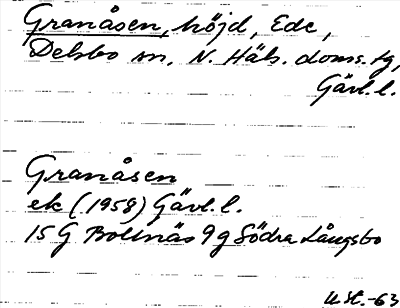 Granåsen, höjd, Ede,
Delsbo sn, N. Häls. doms. tg,
Gävl. l.
Granåsen
ek (1958) Gävl. l.
15 G Bollnäs 9 g Södra Långsbo
-63